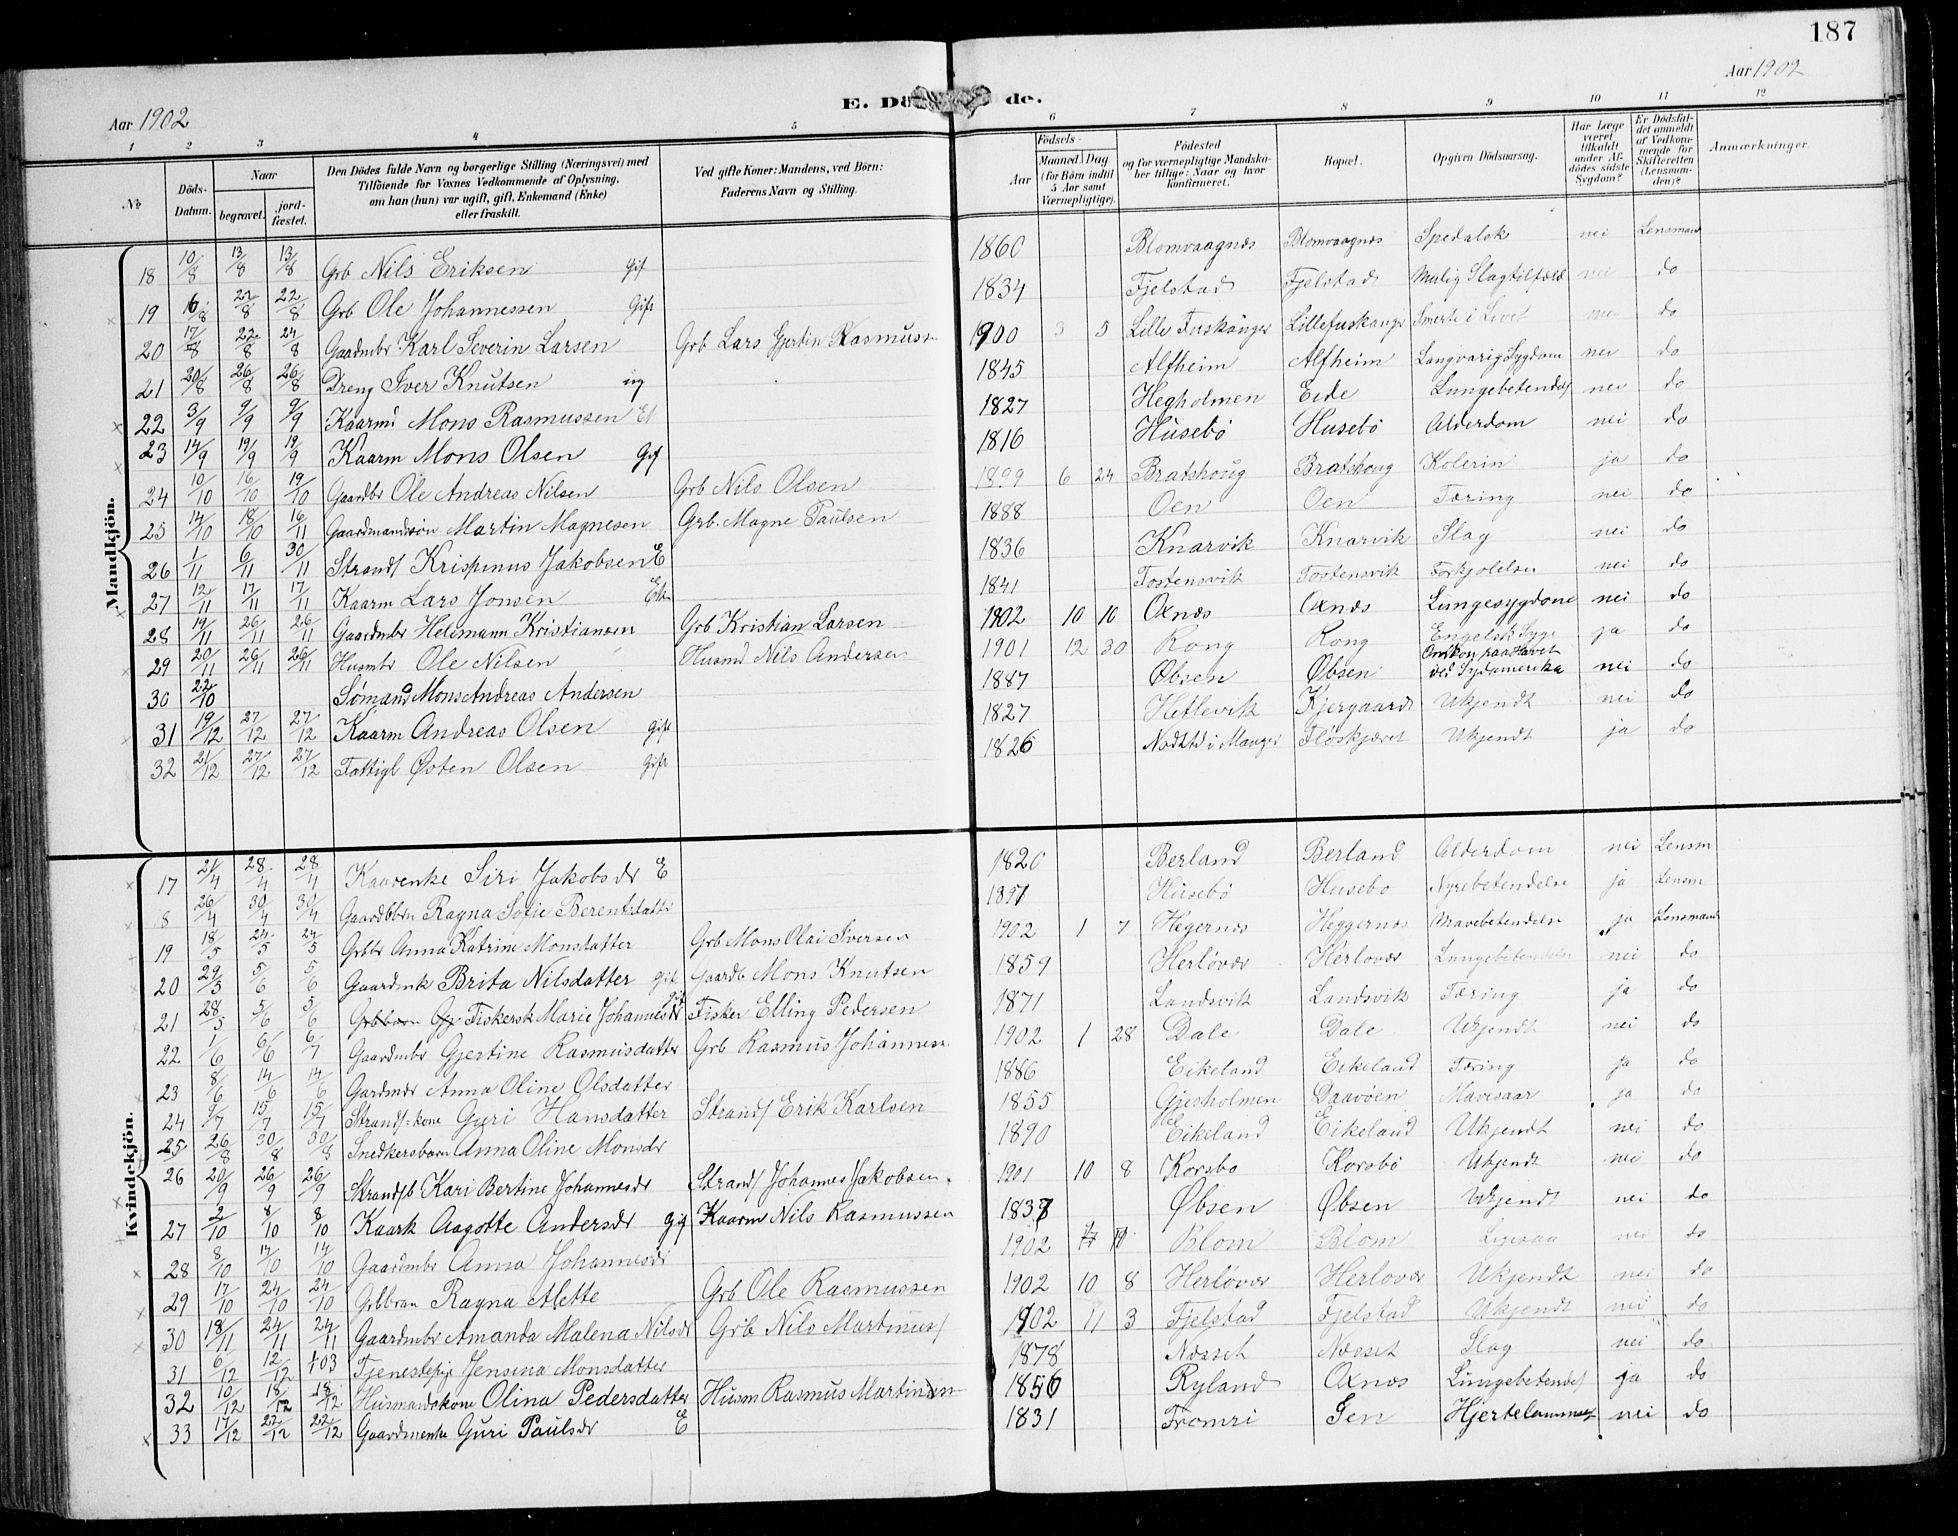 187
Aar 1902
Aar 1902
E. Dö de.
1 2 3 4 5 6 7 8 9 10 11 12
No Döds-Datum. Naar begravet. jord-fæstet. Den Dödes fulde Navn og borgerlige Stilling (Næringsvei) med Tilföiende for Voxnes Vedkommende af Oplysning, om han (hun) var ugift, gift, Enkemand (Enke) eller fraskilt. Ved gifte Koner: Mandens, ved Börn: Faderens Navn og Stilling. Födsels- Aar Maaned. Dag (for Börn indtil 5 Aar samt Værnepligtige). Födested og for værnepligtige Mandskaber tillige: Naar og hvor konfirmeret. Bopæl. Opgiven Dödsaarsag. Har Læge været tilkaldt under Afdödes sidste Sygdom? Er Dödsfaldet anmeldt af Vedkommende for Skifteretten (Lensmanden)? Anmærkninger.
Mandkjön.
18 10/8 13/8 13/8 Grb Nils Eriksen Gif 1860 Blomvaagnes Blomvaagnes Spedalsk nei Lensmand
19 16/8 22/8 22/8 Grb Ole Johannessen Gift 1834 Fjelstad Fjelstad Mulig Slagtilfæld nei do
20 17/8 22/8 24/8 Gaardmbr Karl Severin Larsen Grb Lars Gjertin Rasmuss 1900 3 5 Lille Fuskanger Lillefuskanger Smerte i Livet nei do
21 20/8 26/8 26/8 Dreng Iver Knutsen ug 1845 Alfheim Alfheim Langvarig Sygdom nei do
22 3/9 9/9 9/9 Kaarmd Mons Rasmussen E 1827 Hegholmen Eide Lungebetendels nei do
23 14/9 19/9 19/9 Kaarm Mons Olsen Gif 1816 Husebö Husebö Alderdom nei do
24 10/10 16/10 19/10 Gaardbr Ole Andreas Nilsen Grb Nils Olsen 1899 6 24 Bratshoug Bratshoug Kolerin ja do
25 14/10 18/10 16/11 Gaardmandssön Martin Magnesen Grb. Magne Paulsen 1888 Oen Oen Tæring nei do
26 1/11 6/11 30/11 Strands Krispinus Jakobsen E 1836 Knarvik Knarvik Slag nei do
27 12/11 17/11 17/11 Kaarm Lars Jonsen 1841 Tostensvik Tostensvik Forkjølelse nei do
28 19/11 26/11 26/11 Gaardmbr Helemann Kristiansen Grb Kristian Larsen 1902 10 10 Oxnæs Oxnæs Lungesygdom nei do
29 20/11 26/11 26/11 Husmbr Ole Nilsen Husmd Nils Andersen 1901 12 30 Rong Rong Engelsk Syge ja do
30 22/10 Sømand Mons Andreas Andersen 1887 Øbsen Øbsen Omkom paa Havet ved Sydamerika nei do
31 19/12 27/12 27/12 Kaarm Andreas Olsen gift 1827 Hetlevik Kjergaard Ukjendt nei do
32 21/12 27/12 27/12 Fattigl Østen Olsen Gift 1826 i Manger Fløskjæret Ukjendt ja do
Kvindekjön.
17 21/4 28/4 28/4 Kaarenke Siri Jakobsdr E 1820 Berland Berland Alderdom nei Lensm
18 26/4 30/4 30/4 Ragna Sofie Berentsdatter 1897 Husebö Husebo Nyrebetendelse ja Lensm
19 18/5 24/5 24/5 Grbbr Anna Katrine Monsdatter Grb Mons Olai Iversen 1902 1 7 Hegernes Heggernæs Mavebetendelse ja Lensmand
20 29/5 5/6 5/6 Gaardmk Brita Nilsdatter gif Gaardb Mons Knutsen 1859 Herløvær Herlovær Lungebetendelse nei do
21 28/5 5/6 5/6 Grbbarn Fiskersk Marie Johannesdr gift Fisker Elling Pedersen 1871 Landsvik Landsvik Tæring ja do
22 1/6 6/6 6/7 Gaardmbr Gjertine Rasmusdatter Grb Rasmus Johanness 1902 1 28 Dale Dale Ukjendt nei do
23 8/6 14/6 14/6 Gardmdr Anna Oline Olsdatter 1886 Eikeland Eikeland Tæring ja do
24 9/7 15/7 15/7 Strands.kone Gyri Hansdatter Strands Erik Karlsen 1855 Gjesholmen Daavöen Mavesaar ja do
25 26/8 30/8 30/8 Snedkersbarn Anna Oline Monsdr 1890 Eikeland Eikeland Ukjendt nei do
26 20/9 26/9 26/9 Strands/b Kari Bertine Johannesdr Strands Johannes Jakobsen 1901 10 8 Korsbo Korsbö Ukjendt nei do
27 2/10 8/10 8/10 Kaark Aagotte Andersdr gif Kaarm Nils Rasmussen 1837 Øbsen Øbsen Ukjendt nei do
28 8/10 14/10 14/10 Gaardmbr Anna Johannesdr 1902 Blom Blom nei do
29 17/10 24/10 24/10 Grbbran Ragna Alette Grb Ole Rasmussen 1902 10 8 Herløvær Herlovær Ukjendt nei do
30 18/11 24/11 24/11 Gaardmbr Amanda Malena Nilsdr Grb Nils Martinus/ 1902 11 3 Fjelstad Fjelstad Ukjendt nei do
31 6/12 12/12 1/03 Tjenestepig Jensina Monsdatter 1878 Næsset Næsset Slag nei do
32 10/12 18/12 18/12 Husmandskone Olina Pedersdatter Husm Rasmus Martinsen 1856 Ryland Oxnæs Lungebetendels ja do
33 17/12 22/12 22/12 Gaardmenke Guri Paulsdr E 1831 Tromri Sen nei do